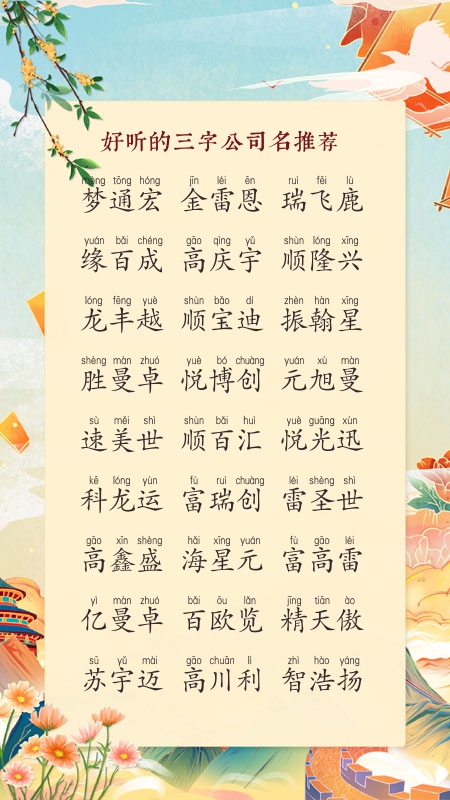 好听的三字公司名推荐
mèng tōng hóng jīn léi ēn ruì fēi lù
梦通宏 金雷恩 瑞飞鹿
yuán bǎi chéng gāo qìng yǔ shùn lóng xīng
缘百成 高庆宇 顺隆兴
lóng fēng yuè shùn bǎo dí zhèn hàn xīng
龙丰越 顺宝迪 振翰星
shèng màn zhuó yuè bó chuàng yuán xù màn
胜曼卓 悦博创 元旭曼
sù měi shì shùn bǎi huì yuè guāng xùn
速美世 顺百汇 悦光迅
kē lóng yùn fù ruì chuàng léi shèng shì
科龙运 富瑞创 雷圣世
gāo xīn shèng hǎi xīng yuán fù gāo léi
高鑫盛 海星元 富高雷
yì màn zhuó bǎi ōu lǎn jīng tiān ào
亿曼卓 百欧览 精天傲
sū yǔ mài gāo chuān lì zhì hào yáng
苏宇迈 高川利 智浩扬